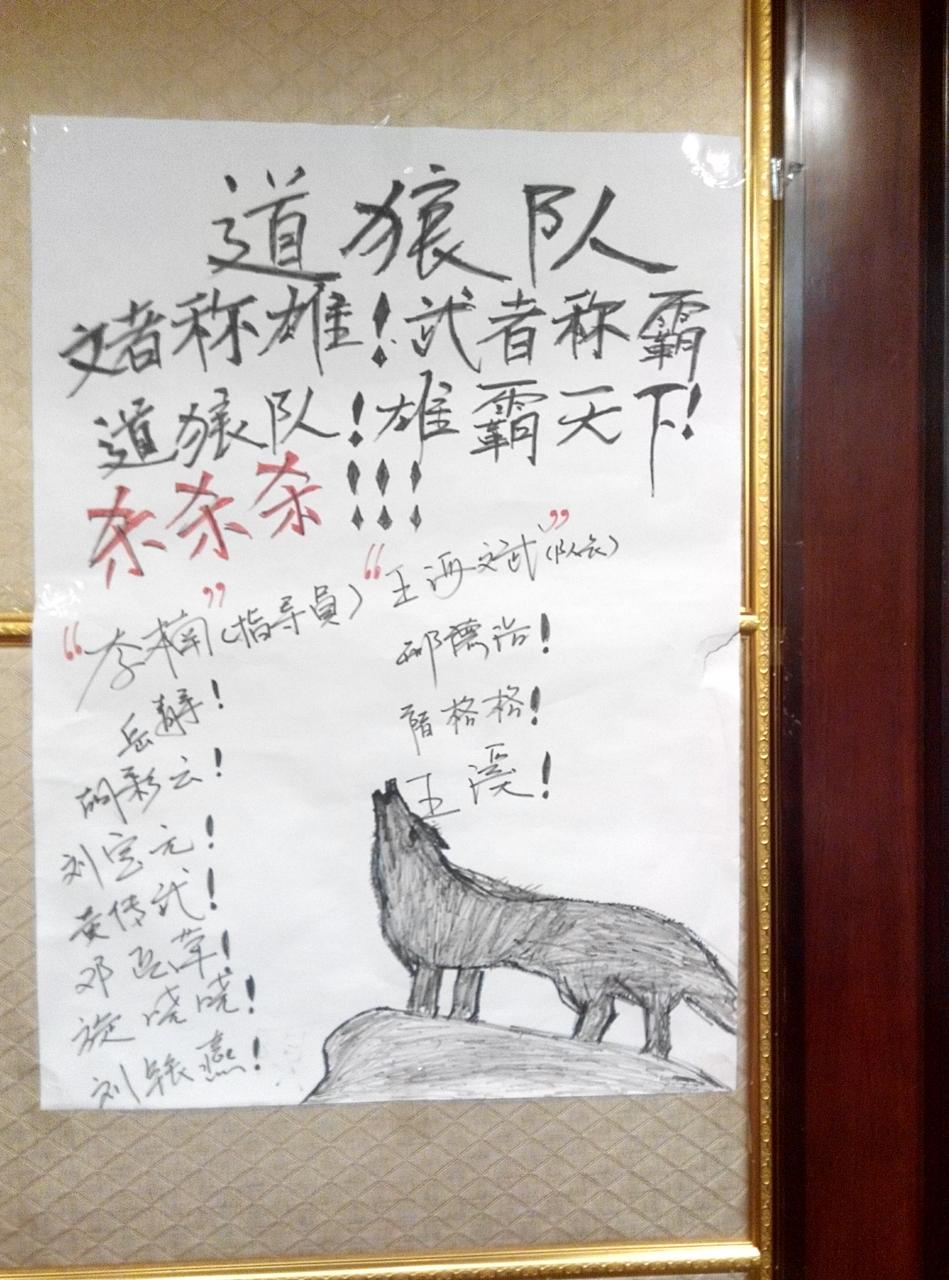 道狼队
文者称雄!武者称霸
道狼队!雄霸天下!
杀杀杀!!!
“李楠”(指导員)
“王海斌”(队长)
邱德浩!
王溪!
格格!
岳静!
胡彩云!
刘宝元!
黄伟武!
邓草!
旋晓晓!
刘燕!